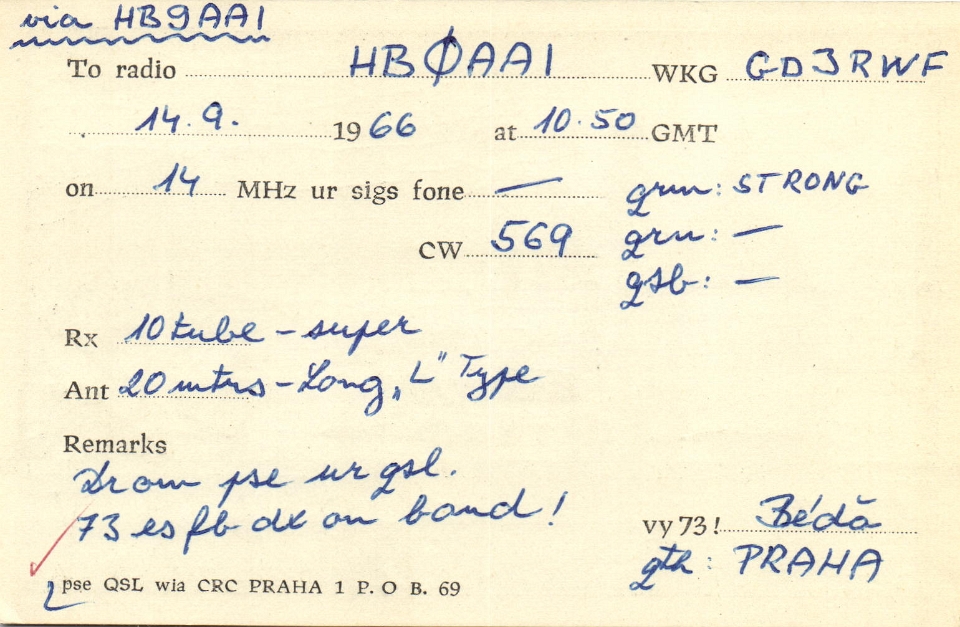 via HB9AAI
To radio HBØAAI WKG GD3RWF
14.9. 1966 at 10.50 GMT
on 14 MHz ur sigs fone — qrm: STRONG
CW 569 qrn: —
qsb: —
Rx 10 tube - super
Ant 20 mtrs - Long „L" Type
Remarks
Dr om pse ur qsl.
73 es fb dx on band!
vy 73! Béďa
qth: PRAHA
pse QSL wia CRC PRAHA 1 P. O B. 69